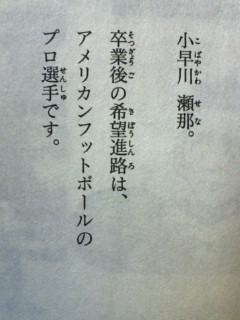 小早川 瀬那。
卒業後の希望進路は、
アメリカンフットボールの
プロ選手です。